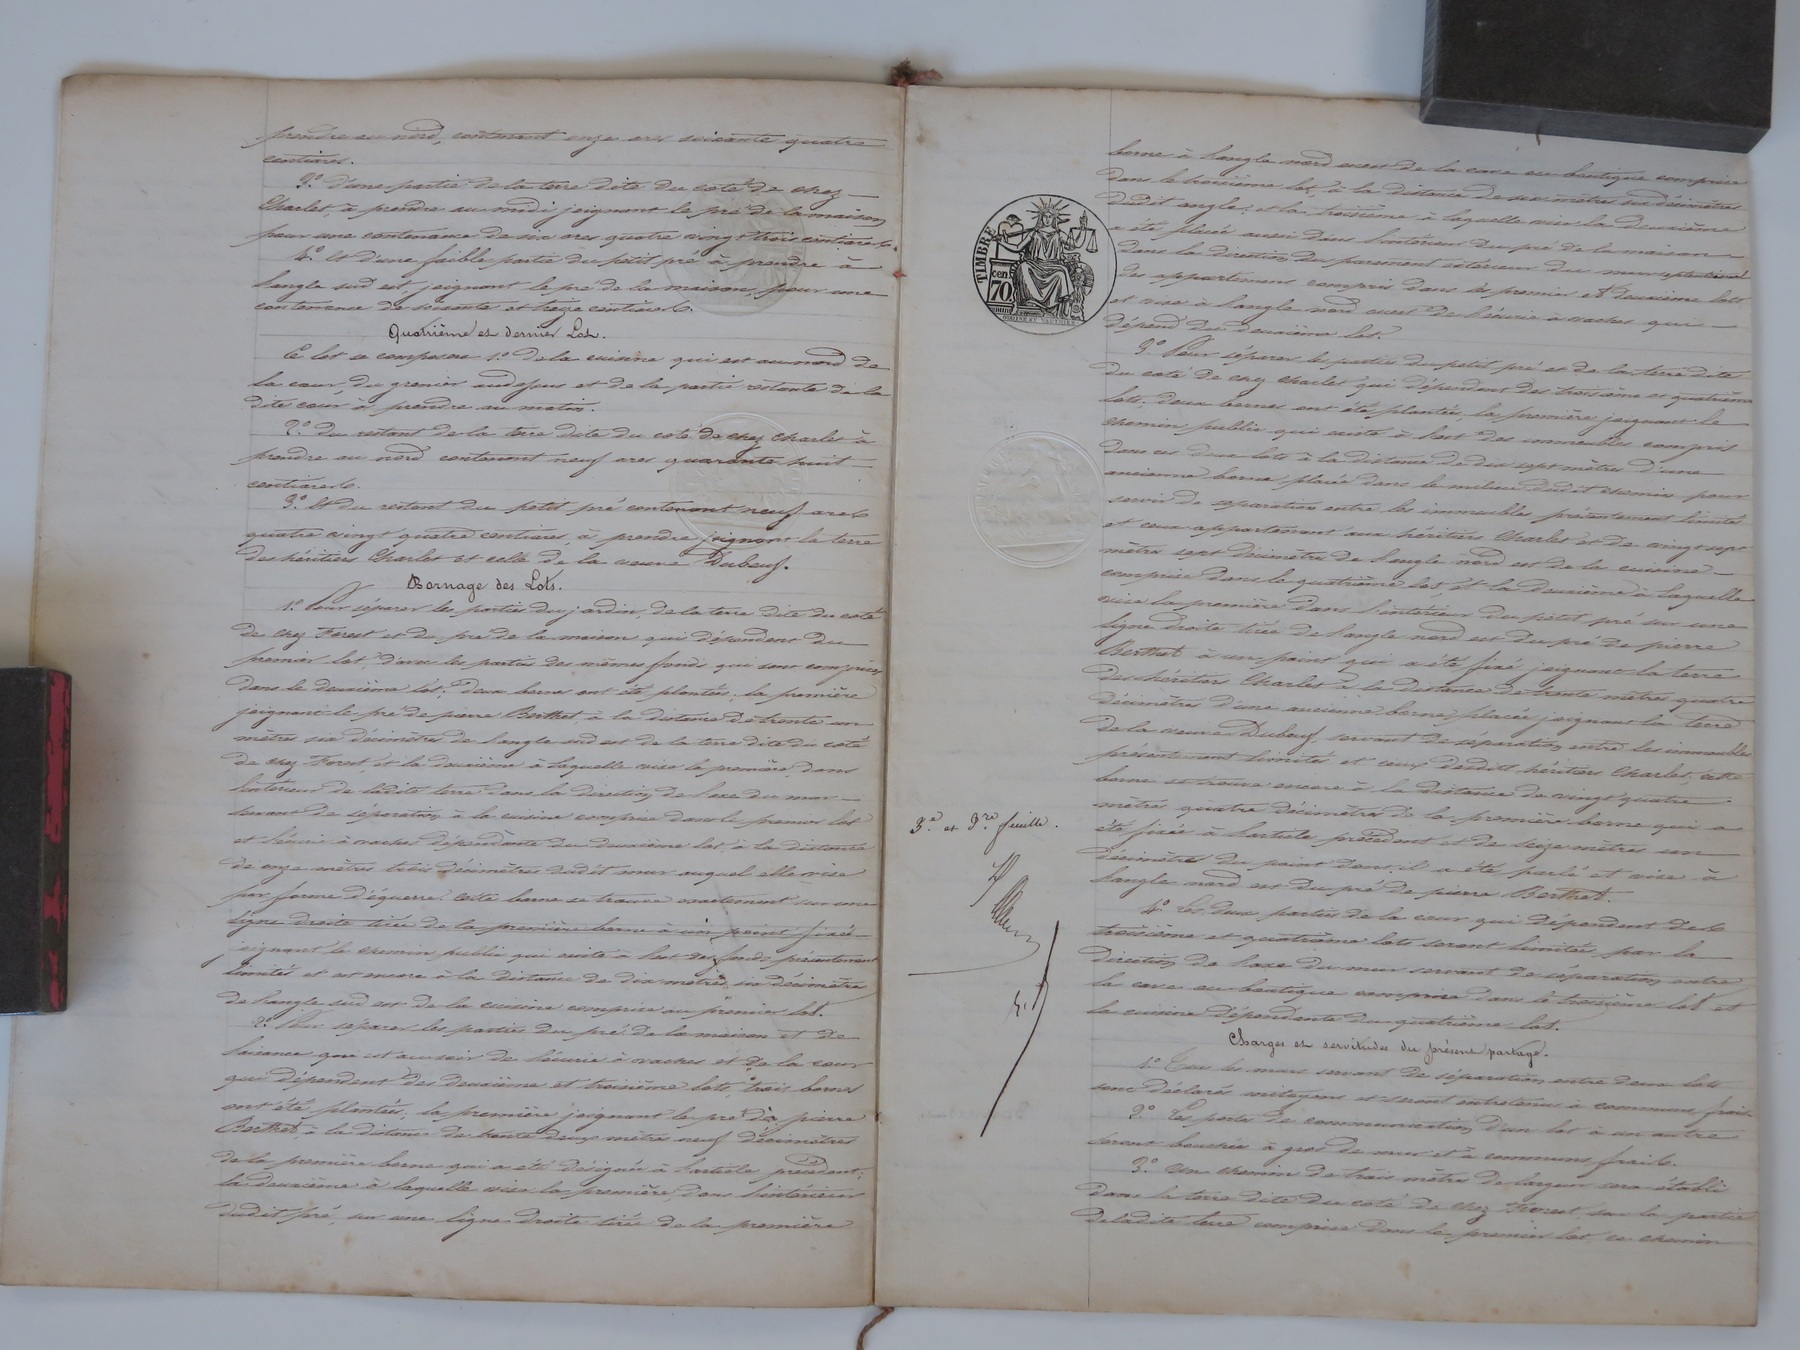 prendre au nord, contenant onze ares soixante quatre
centiares.
3.° d'une partie de la terre dite du coté de chez
Charlet, à prendre au midi joignant le pré de la maison
pour une contenance de six ares quatre vingt trois centiares.
4.° et d'une faible partie du petit pré à prendre à
l'angle sud est joignant le pré de la maison, pour une
contenance de soixante et treize centiares.
Quatrième et dernier Lot.
Ce lot se compose 1.° de la cuisine qui est au nord de
la cour, du grenier au dessus et de la partie restante de la
dite cour à prendre au matin.
2.° du restant de la terre dite du coté de chez Charlet à
prendre au nord contenant neuf ares quarante huit
centiares.
3.° Et du restant du petit pré contenant neuf ares
quatre vingt quatre centiares, à prendre joignant la terre
des héritiers Charlet et celle de la veuve Dubeuf.
Bornage des Lots.
1.° Pour séparer les parties du jardin, de la terre dite du coté
de chez Forest et du pré de la maison qui dépendent du
premier lot, d'avec les parties des mêmes fonds qui sont comprises
dans le deuxième lot; deux bornes ont été plantées, la première
joignant le pré de pierre Berthet, à la distance de trente un
mètres six décimètres de l'angle sud est de la terre dite du coté
de chez Forest, et la deuxième à laquelle vise la première, dans
l'intérieur de ladite terre dans la direction de l'axe du mur
servant de séparation à la cuisine comprise dans le premier lot
et l'écurie à vaches dépendante du deuxième lot, à la distance
de onze mètres trois décimètres dudit mur auquel elle vise
par forme d'équerre. Cette borne se trouve exactement sur une
ligne droite tirée de la première borne à un point fixé
joignant le chemin public qui existe à l'est des fonds présentement
limités et est encore à la distance de dix mètres six décimètres
de l'angle sud est de la cuisine comprise au premier lot.
2.° Pour séparer les parties du pré de la maison et de
l'aisance qui est au soir de l'écurie à vaches et de la cour
qui dépendent des deuxième et troisième lots, trois bornes
ont été plantées, la première joignant le pré de pierre
Berthet, à la distance de trente deux mètres neuf décimètres
de la première borne qui a été désignée à l'article précédent;
la deuxième à laquelle vise la première, dans l'intérieur
dudit pré, sur une ligne droite tirée de la première
TIMBRE
70 cen
3.e et 3.re feuille.
borne à l'angle nord ouest de la cave ou boutique comprise
dans le troisième lot, à la distance de six mètres six décimètres
dudit angle; et la troisième à laquelle vise la deuxième
a été placée aussi dans l'intérieur du pré de la maison
dans la direction du parement intérieur du mur septentrional
des appartements compris dans les premier et deuxième lots
et vise à l'angle nord ouest de l'écurie à vaches qui
dépend du deuxième lot.
3.° Pour séparer les parties du petit pré et de la terre dite
du coté de chez Charlet qui dépendent des troisième et quatrième
lots, deux bornes ont été plantées, la première joignant le
chemin public qui existe à l'est des immeubles compris
dans ces deux lots à la distance de dix sept mètres d'une
ancienne borne placée dans le milieu dudit chemin pour
servir de séparation entre les immeubles présentement limités
et ceux appartenant aux héritiers Charlet et de vingt sept
mètres sept décimètres de l'angle nord est de la cuisine
comprise dans le quatrième lot, et la deuxième à laquelle
vise la première dans l'intérieur du petit pré sur une
ligne droite tirée de l'angle nord est du pré de pierre
Berthet à un point qui a été fixé joignant la terre
des héritiers Charlet à la distance de trente mètres quatre
décimètres d'une ancienne borne placée joignant la terre
de la veuve Dubeuf, servant de séparation entre les immeubles
présentement limités et ceux desdits héritiers Charlet, cette
borne se trouve encore à la distance de vingt quatre
mètres quatre décimètres de la première borne qui a
été fixée à l'article précédent et de seize mètres un
décimètre du point dont il a été parlé et vise à
l'angle nord est du pré de pierre Berthet.
4.° Les deux parties de la cour qui dépendent des
troisième et quatrième lots seront limités par la
direction de l'axe du mur servant de séparation entre
la cave ou boutique comprise dans le troisième lot et
la cuisine dépendante du quatrième lot.
Charges et servitudes du présent partage.
1.° Tous les murs servant de séparation entre deux lots
sont déclarés mitoyens et seront entretenus à communs frais.
2.° Les portes de communication d'un lot à un autre
seront bouchées à gros de mur et à communs frais.
3.° Un chemin de trois mètres de largeur sera établi
dans la terre dite du coté de chez Forest, sur la partie
de ladite terre comprise dans le premier lot, ce chemin